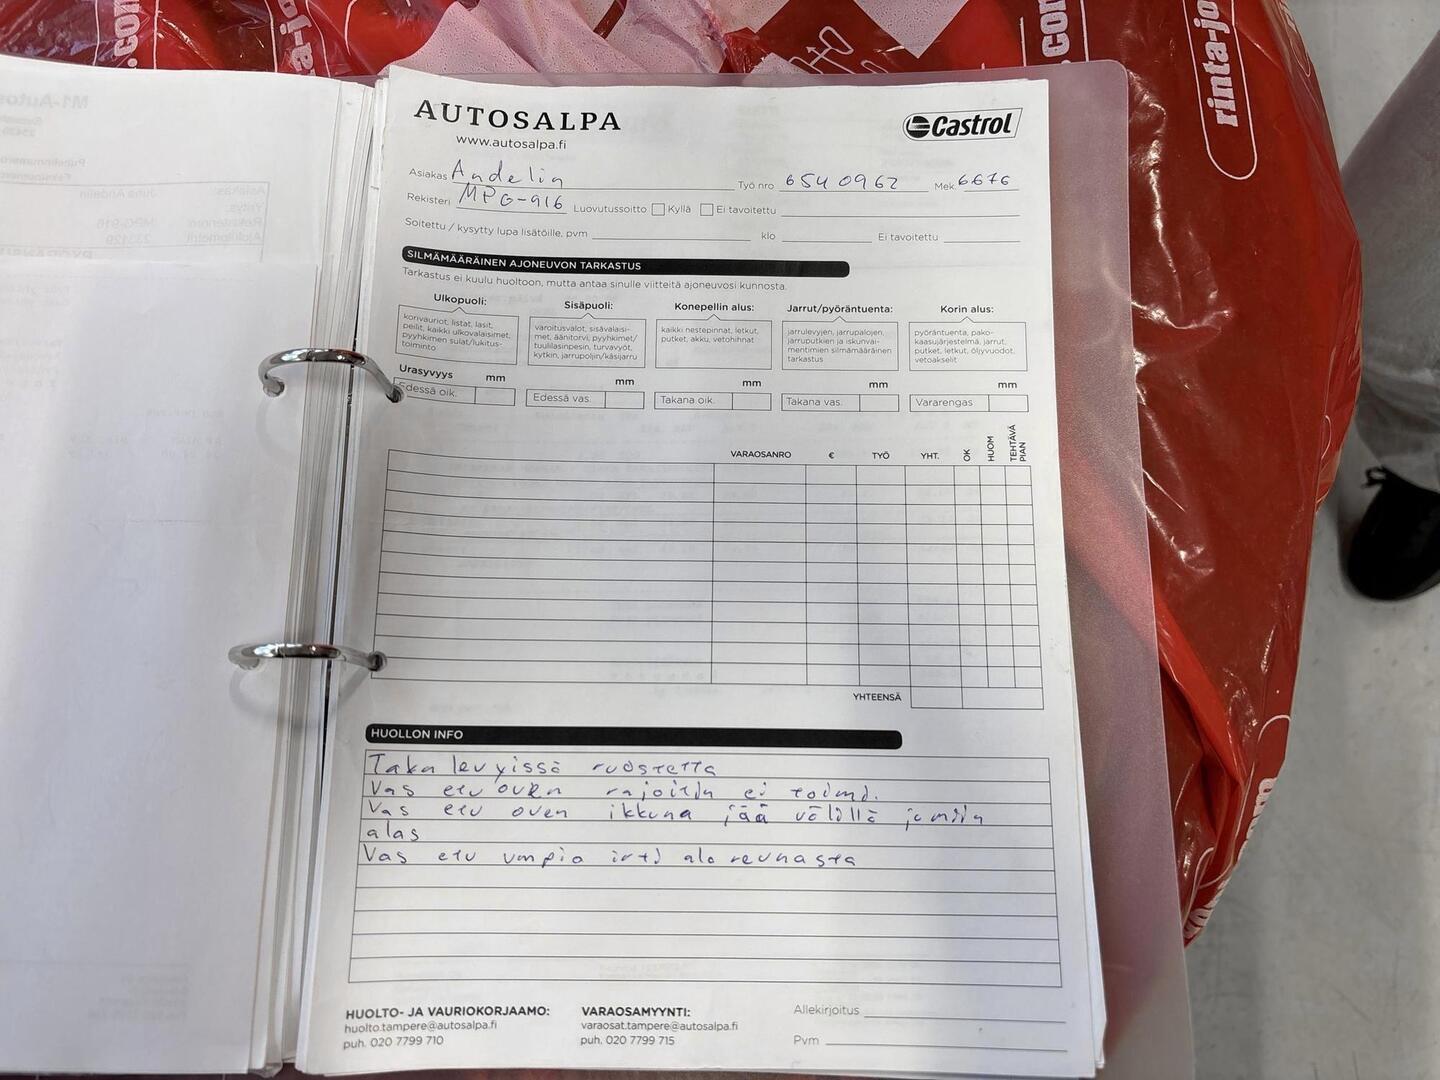 AUTOSALPA
www.autosalpa.fi
Castrol
Asiakas Andelin Työ nro 6540962 Mek. 6676
Rekisteri MPG-916 Luovutussoitto Kyllä Ei tavoitettu
Soitettu / kysytty lupa lisätöille, pvm klo Ei tavoitettu
SILMÄMÄÄRÄINEN AJONEUVON TARKASTUS
Tarkastus ei kuulu huoltoon, mutta antaa sinulle viitteitä ajoneuvosi kunnosta.
Ulkopuoli:
korivauriot, listat, lasit,
peilit, kaikki ulkovalaisimet,
pyyhkimen sulat/lukitus-
toiminto
Sisäpuoli:
varoitusvalot, sisävalaisi-
met, äänitorvi, pyyhkimet/
tuulilasinpesin, turvavyöt,
kytkin, jarrupoljin/käsijarru
Konepellin alus:
kaikki nestepinnat, letkut,
putket, akku, vetohihnat
Jarrut/pyöräntuenta:
jarrulevyjen, jarrupalojen,
jarruputkien ja iskunvai-
mentimien silmämääräinen
tarkastus
Korin alus:
pyöräntuenta, pako-
kaasujärjestelmä, jarrut,
putket, letkut, öljyvuodot,
vetoakselit
Urasyvyys mm mm mm mm mm
Edessä oik. Edessä vas. Takana oik. Takana vas. Vararengas
VARAOSANRO € TYÖ YHT. OK HUOM TEHTÄVÄ PIAN
YHTEENSÄ
HUOLLON INFO
Taka levyissä ruostetta
Vas etu oven rajoitin ei toimi.
Vas etu oven ikkuna jää välillä jumiin
alas
Vas etu umpio irti ala reunasta
HUOLTO- JA VAURIOKORJAAMO:
huolto.tampere@autosalpa.fi
puh. 020 7799 710
VARAOSAMYYNTI:
varaosat.tampere@autosalpa.fi
puh. 020 7799 715
Allekirjoitus
Pvm
rinta-jo
.com
.com